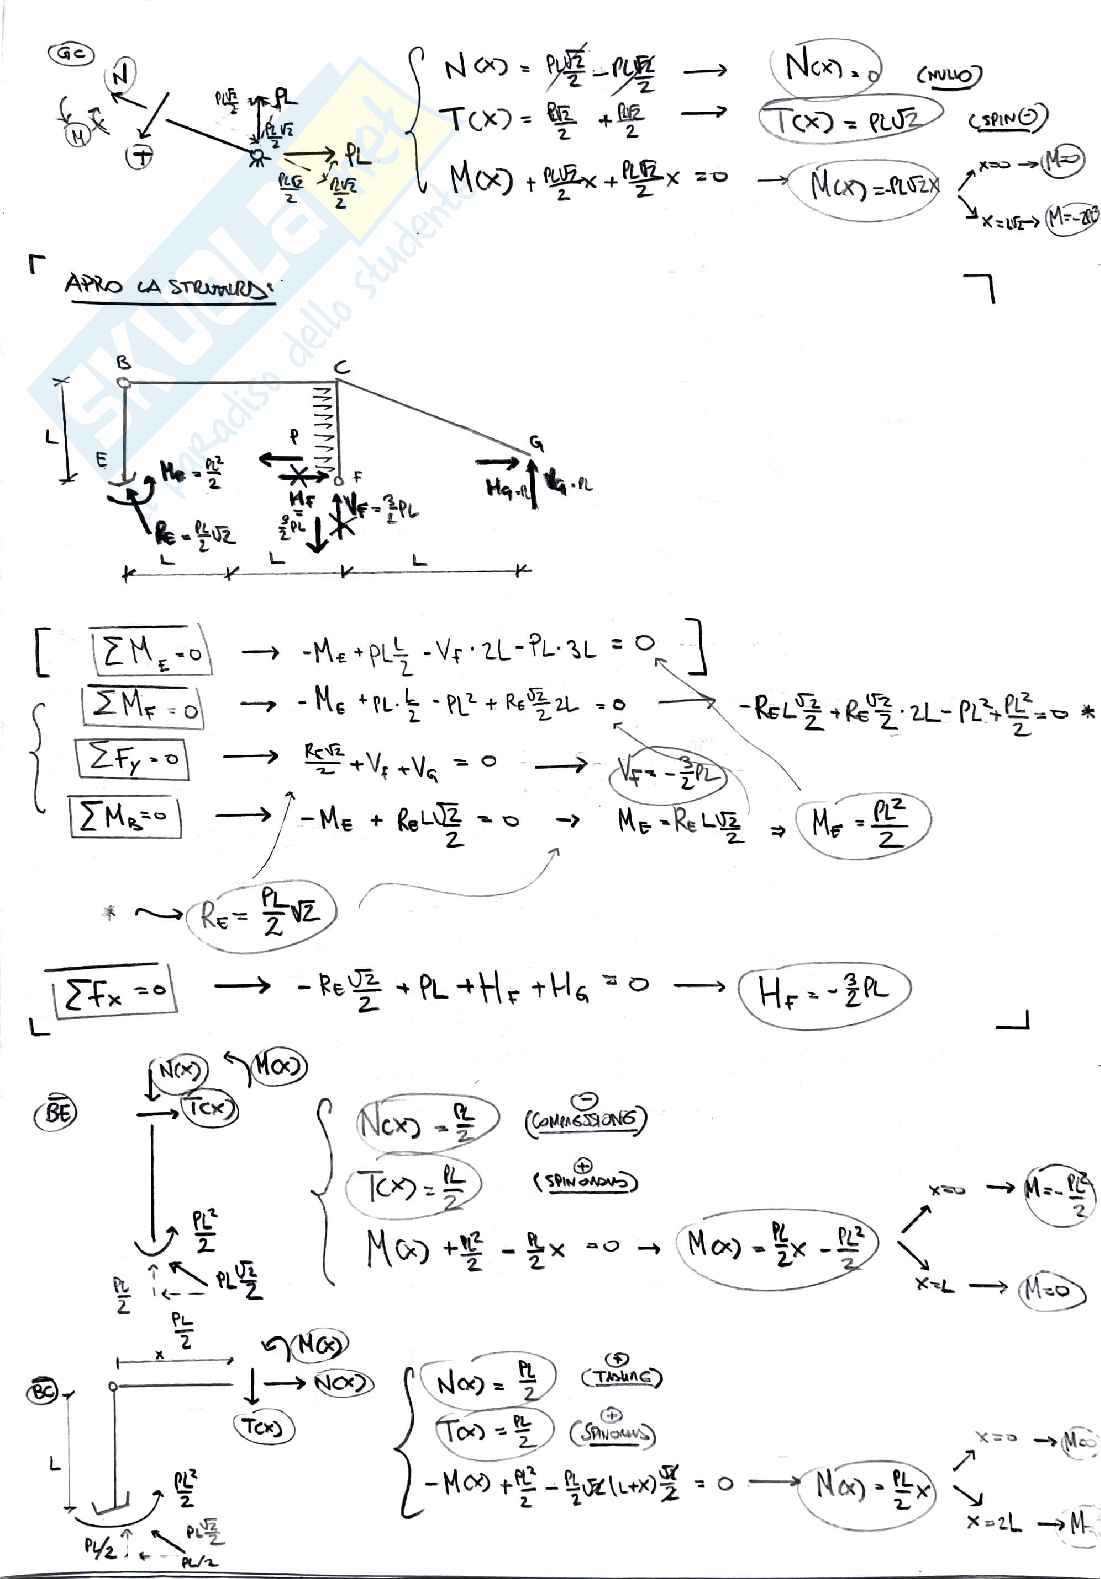 GC
N
M
T
PL√2/2
PL
PL√2/2
PL
PL√2/2
PL√2/2
N(x) = PL√2/2 - PL√2/2 → N(x)=0 (NULLO)
T(x) = PL√2/2 + PL√2/2 → T(x) = PL√2 (SPIN⊖)
M(x) + PL√2/2 x + PL√2/2 x = 0 → M(x)=-PL√2x
x=0 → M=0
x=L√2 → M=-2PL²
SKUOLA.net
il paradiso dello studente
APRO LA STRUTTURA:
B
C
L
E
P
F
G
M_E = PL²/2
H_F = 3/2 PL
V_F = 3/2 PL
H_G = PL
V_G = PL
R_E = PL/2 √2
L
L
L
[ ΣM_E=0 → -M_E + PL L/2 - V_F · 2L - PL · 3L = 0 ]
ΣM_F=0 → -M_E + PL · L/2 - PL² + R_E √2/2 2L = 0 → -R_E L √2/2 + R_E √2/2 · 2L - PL² + PL²/2 = 0 *
ΣF_y=0 → R_E√2/2 + V_F + V_G = 0 → V_F = -3/2 PL
ΣM_B=0 → -M_E + R_E L √2/2 = 0 → M_E = R_E L √2/2 ⇒ M_E = PL²/2
* → R_E = PL/2 √2
ΣF_x=0 → -R_E √2/2 + PL + H_F + H_G = 0 → H_F = -3/2 PL
BE
N(x)
M(x)
T(x)
PL²/2
PL/2
PL√2/2
PL/2
N(x) = PL/2 ⊖ (COMPRESSIONE)
T(x) = PL/2 ⊕ (SPINORARIO)
M(x) + PL²/2 - PL/2 x = 0 → M(x) = PL/2 x - PL²/2
x=0 → M=-PL²/2
x=L → M=0
BC
x
M(x)
N(x)
T(x)
L
PL²/2
PL√2/2
PL/2
PL/2
N(x) = PL/2 ⊕
T(x) = PL/2 ⊕
-M(x) + PL²/2 - PL/2 √2 (L+x) √2/2 = 0 → M(x) = PL/2 x
x=0 → M=0
x=2L → M=